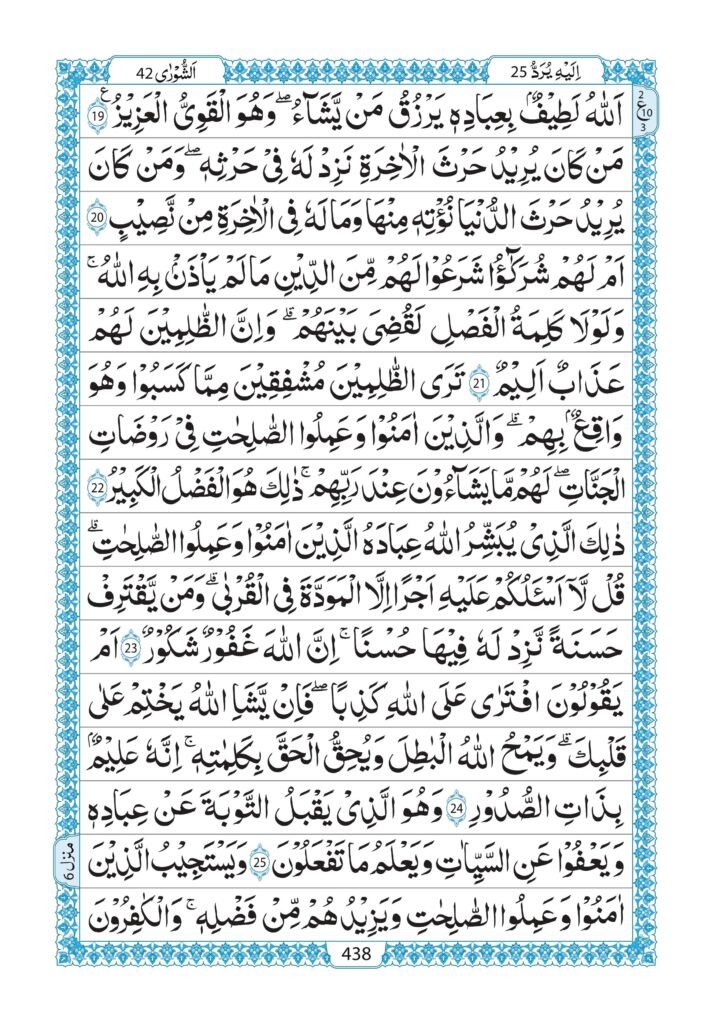 اِلَيْهِ يُرَدُّ 25
اَلشُّوْرٰى 42
2
ع 10
3
اَللّٰهُ لَطِيْفٌۢ بِعِبَادِهٖ يَرْزُقُ مَنْ يَّشَآءُ ۖ وَهُوَ الْقَوِىُّ الْعَزِيْزُ ࣖ 19
مَنْ كَانَ يُرِيْدُ حَرْثَ الْاٰخِرَةِ نَزِدْ لَهٗ فِىْ حَرْثِهٖ ۖ وَمَنْ كَانَ
يُرِيْدُ حَرْثَ الدُّنْيَا نُؤْتِهٖ مِنْهَا وَمَا لَهٗ فِى الْاٰخِرَةِ مِنْ نَّصِيْبٍ 20
اَمْ لَهُمْ شُرَكٰٓؤُا شَرَعُوْا لَهُمْ مِّنَ الدِّيْنِ مَا لَمْ يَاْذَنْۢ بِهِ اللّٰهُ ۚ
وَلَوْلَا كَلِمَةُ الْفَصْلِ لَقُضِىَ بَيْنَهُمْ ۗ وَاِنَّ الظّٰلِمِيْنَ لَهُمْ
عَذَابٌ اَلِيْمٌ 21 تَرَى الظّٰلِمِيْنَ مُشْفِقِيْنَ مِمَّا كَسَبُوْا وَهُوَ
وَاقِعٌۢ بِهِمْ ۗ وَالَّذِيْنَ اٰمَنُوْا وَعَمِلُوا الصّٰلِحٰتِ فِىْ رَوْضَاتِ
الْجَنّٰتِ ۖ لَهُمْ مَّا يَشَآءُوْنَ عِنْدَ رَبِّهِمْ ۚ ذٰلِكَ هُوَ الْفَضْلُ الْكَبِيْرُ 22
ذٰلِكَ الَّذِىْ يُبَشِّرُ اللّٰهُ عِبَادَهُ الَّذِيْنَ اٰمَنُوْا وَعَمِلُوا الصّٰلِحٰتِ ۗ
قُلْ لَّآ اَسْئَلُكُمْ عَلَيْهِ اَجْرًا اِلَّا الْمَوَدَّةَ فِى الْقُرْبٰى ۗ وَمَنْ يَّقْتَرِفْ
حَسَنَةً نَّزِدْ لَهٗ فِيْهَا حُسْنًا ۚ اِنَّ اللّٰهَ غَفُوْرٌ شَكُوْرٌ 23 اَمْ
يَقُوْلُوْنَ افْتَرٰى عَلَى اللّٰهِ كَذِبًا ۖ فَاِنْ يَّشَاِ اللّٰهُ يَخْتِمْ عَلٰى
قَلْبِكَ ۗ وَيَمْحُ اللّٰهُ الْبٰطِلَ وَيُحِقُّ الْحَقَّ بِكَلِمٰتِهٖ ۚ اِنَّهٗ عَلِيْمٌۢ
بِذَاتِ الصُّدُوْرِ 24 وَهُوَ الَّذِىْ يَقْبَلُ التَّوْبَةَ عَنْ عِبَادِهٖ
وَيَعْفُوْا عَنِ السَّيِّاٰتِ وَيَعْلَمُ مَا تَفْعَلُوْنَ 25 وَيَسْتَجِيْبُ الَّذِيْنَ
اٰمَنُوْا وَعَمِلُوا الصّٰلِحٰتِ وَيَزِيْدُهُمْ مِّنْ فَضْلِهٖ ۚ وَالْكٰفِرُوْنَ
منزل 6
438